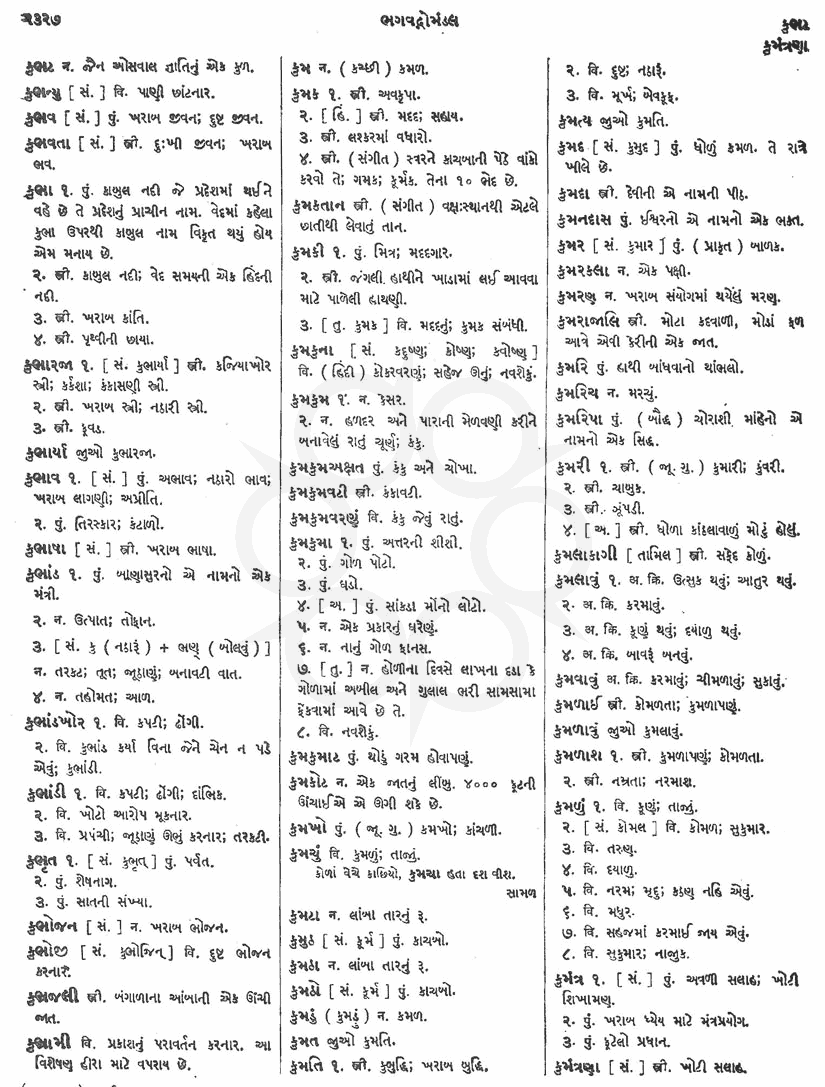 ૨૩૨૭
ભગવદ્ગોમંડલ
કુભટ
કુમંત્રણા
કુભટ ન. જૈન ઓસવાલ જ્ઞાતિનું એક કુળ.
કુભન્યુ [ સં. ] વિ. પાણી છાંટનાર.
કુભવ [ સં. ] પું. ખરાબ જીવન; દુષ્ટ જીવન.
કુભવતા [ સં. ] સ્ત્રી. દુઃખી જીવન; ખરાબ
ભવ.
કુભા ૧. પું. કાબુલ નદી જે પ્રદેશમાં થઈને
વહે છે તે પ્રદેશનું પ્રાચીન નામ. વેદમાં કહેલા
કુભા ઉપરથી કાબુલ નામ વિકૃત થયું હોય
એમ મનાય છે.
૨. સ્ત્રી. કાબુલ નદી; વેદ સમયની એક હિંદની
નદી.
૩. સ્ત્રી. ખરાબ કાંતિ.
૪. સ્ત્રી. પૃથ્વીની છાયા.
કુભારજા ૧. [ સં. કુભાર્યા ] સ્ત્રી. કજિયાખોર
સ્ત્રી; કર્કશા; કંકાસણી સ્ત્રી.
૨. સ્ત્રી. ખરાબ સ્ત્રી; નઠારી સ્ત્રી.
૩. સ્ત્રી. કૂવડ.
કુભાર્યા જુઓ કુભારજા.
કુભાવ ૧. [ સં. ] પું. અભાવ; નઠારો ભાવ;
ખરાબ લાગણી; અપ્રીતિ.
૨. પું. તિરસ્કાર; કંટાળો.
કુભાષા [ સં. ] સ્ત્રી. ખરાબ ભાષા.
કુભાંડ ૧. પું. બાણાસુરનો એ નામનો એક
મંત્રી.
૨. ન. ઉત્પાત; તોફાન.
૩. [ સં. કુ ( નઠારૂં ) + ભણ્ ( બોલવું ) ]
ન. તરકટ; તૂત; જૂઠાણું; બનાવટી વાત.
૪. ન. તહોમત; આળ.
કુભાંડખોર ૧. વિ. કપટી; ઢોંગી.
૨. વિ. કુભાંડ કર્યા વિના જેને ચેન ન પડે
એવું; કુભાંડી.
કુભાંડી ૧. વિ. કપટી; ઢોંગી; દાંભિક.
૨. વિ. ખોટો આરોપ મૂકનાર.
૩. વિ. પ્રપંચી; જૂઠાણું ઊભું કરનાર; તરકટી.
કુભૃત ૧. [ સં. કુભૃત્ ] પું. પર્વત.
૨. પું. શેષનાગ.
૩. પું. સાતની સંખ્યા.
કુભોજન [ સં. ] ન. ખરાબ ભોજન.
કુભોજી [ સં. કુભોજિન્ ] વિ. દુષ્ટ ભોજન
કરનાર.
કુભ્રજલી સ્ત્રી. બંગાળાના આંબાની એક ઊંચી
જાત.
કુભ્રામી વિ. પ્રકાશનું પરાવર્તન કરનાર. આ
વિશેષણ હીરા માટે વપરાય છે.
કુમ ન. ( કચ્છી ) કમળ.
કુમક ૧. સ્ત્રી. અવકૃપા.
૨. [ હિં. ] સ્ત્રી. મદદ; સહાય.
૩. સ્ત્રી. લશ્કરમાં વધારો.
૪. સ્ત્રી. ( સંગીત ) સ્વરને કાચબાની પેઠે વાંકો
કરવો તે; ગમક; કૂર્મક. તેના ૧૦ ભેદ છે.
કુમકતાન સ્ત્રી. ( સંગીત ) વક્ષઃસ્થાનથી એટલે
છાતીથી લેવાતું તાન.
કુમકી ૧. પું. મિત્ર; મદદગાર.
૨. સ્ત્રી. જંગલી હાથીને ખાડામાં લઈ આવવા
માટે પાળેલી હાથણી.
૩. [ તુ. કુમક ] વિ. મદદનું; કુમક સંબંધી.
કુમકુના [ સં. કદુષ્ણ; કોષ્ણ; કવોષ્ણ ]
વિ. ( હિંદી ) કોકરવરણું; સહેજ ઊનું; નવશેકું.
કુમકુમ ૧. ન. કેસર.
૨. ન. હળદર અને પારાની મેળવણી કરીને
બનાવેલું રાતું ચૂર્ણ; કંકુ.
કુમકુમઅક્ષત પું. કંકુ અને ચોખા.
કુમકુમવટી સ્ત્રી. કંકાવટી.
કુમકુમવરણું વિ. કંકુ જેવું રાતું.
કુમકુમા ૧. પું. અત્તરની શીશી.
૨. પું. ગોળ પોટો.
૩. પું. ઘડો.
૪. [ અ. ] પું. સાંકડા મોંનો લોટો.
૫. ન. એક પ્રકારનું ઘરેણું.
૬. ન. નાનું ગોળ ફાનસ.
૭. [ તુ. ] ન. હોળીના દિવસે લાખના દડા કે
ગોળામાં અબીલ અને ગુલાલ ભરી સામસામા
ફેંકવામાં આવે છે તે.
૮. વિ. નવશેકું.
કુમકુમાટ પું. થોડું ગરમ હોવાપણું.
કુમકોટ ન. એક જાતનું લીંબુ. ૪૦૦૦ ફૂટની
ઊંચાઈએ એ ઊગી શકે છે.
કુમખો પું. ( જૂ. ગુ. ) કમખો; કાંચળી.
કુમચું વિ. કુમળું; તાજું.
કોળાં વેચે કાછિયો, કુમચા હતા દશ વીશ.
સામળ
કુમટા ન. લાંબા તારનું રૂ.
કુમુઠ [ સં. કૂર્મ ] પું. કાચબો.
કુમઠા ન. લાંબા તારનું રૂ.
કુમઠો [ સં. કૂર્મ ] પું. કાચબો.
કુમડું ( કુમડું ) ન. કમળ.
કુમત જુઓ કુમતિ.
કુમતિ ૧. સ્ત્રી. કુબુદ્ધિ; ખરાબ બુદ્ધિ.
૨. વિ. દુષ્ટ; નઠારૂં.
૩. વિ. મૂર્ખ; બેવકૂફ.
કુમત્ય જુઓ કુમતિ.
કુમદ [ સં. કુમુદ ] પું. ધોળું કમળ. તે રાત્રે
ખીલે છે.
કુમદા સ્ત્રી. દેવીની એ નામની પીઠ.
કુમનદાસ પું. ઈશ્વરનો એ નામનો એક ભક્ત.
કુમર [ સં. કુમાર ] પું. ( પ્રાકૃત ) બાળક.
કુમરકલા ન. એક પક્ષી.
કુમરણ ન. ખરાબ સંયોગમાં થયેલું મરણ.
કુમરાજાલિ સ્ત્રી. મોટા કદવાળી, મોડાં ફળ
આવે એવી કેરીની એક જાત.
કુમરિ પું. હાથી બાંધવાનો થાંભલો.
કુમરિચ ન. મરચું.
કુમરિપા પું. ( બૌદ્ધ ) ચોરાશી માંહેનો એ
નામનો એક સિદ્ધ.
કુમરી ૧. સ્ત્રી. ( જૂ. ગુ. ) કુમારી; કુંવરી.
૨. સ્ત્રી. ચાબુક.
૩. સ્ત્રી. ઝૂંપડી.
૪. [ અ. ] સ્ત્રી. ધોળા કાંઠલાવાળું મોટું હોલું.
કુમલાકાગી [ તામિલ ] સ્ત્રી. સફેદ કોળું.
કુમલાવું ૧. અ. ક્રિ. ઉત્સુક થવું; આતુર થવું.
૨. અ. ક્રિ. કરમાવું.
૩. અ. ક્રિ. કૂણું થવું; દયાળુ થવું.
૪. અ. ક્રિ. બાવરૂં બનવું.
કુમવાવું અ. ક્રિ. કરમાવું; ચીમળાવું; સુકાવું.
કુમળાઈ સ્ત્રી. કોમળતા; કુમળાપણું.
કુમળાવું જુઓ કુમલાવું.
કુમળાશ ૧. સ્ત્રી. કુમળાપણું; કોમળતા.
૨. સ્ત્રી. નમ્રતા; નરમાશ.
કુમળું ૧. વિ. કૂણું; તાજું.
૨. [ સં. કોમલ ] વિ. કોમળ; સુકુમાર.
૩. વિ. તરુણ.
૪. વિ. દયાળુ.
૫. વિ. નરમ; મૃદુ; કઠણ નહિ એવું.
૬. વિ. મધુર.
૭. વિ. સહજમાં કરમાઈ જાય એવું.
૮. વિ. સુકુમાર; નાજુક.
કુમંત્ર ૧. [ સં. ] પું. અવળી સલાહ; ખોટી
શિખામણ.
૨. પું. ખરાબ ધ્યેય માટે મંત્રપ્રયોગ.
૩. પું. ફૂટેલો પ્રધાન.
કુમંત્રણા [ સં. ] સ્ત્રી. ખોટી સલાહ.